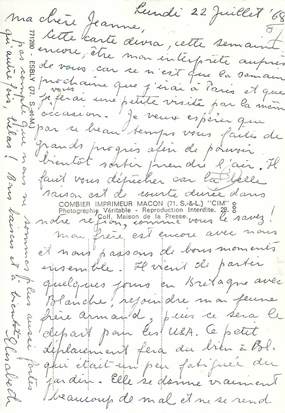 Lundi 22 Juillet '68
ma chère Jeanne,
Cette carte devra, cette semaine
encore, être mon interprète auprès
de vous car ce n'est que la semaine
prochaine que j'irai à Paris et que
je ferai une petite visite par la même
occasion. Je veux espérer que
par ce beau temps vous faites de
grands progrès afin de pouvoir
bientôt sortir prendre l'air. Il
faut vous dépêcher car la belle
saison est de courte durée dans
COMBIER IMPRIMEUR MACON (71, S.-&-L.) "CIM"
Photographie Véritable - Reproduction Interdite.
Coll. Maison de la Presse
notre région, comme vous le savez!
Mon frère est encore avec nous
et nous passons de bons moments
ensemble. Il vient de partir
quelques jours en Bretagne avec
Blanche, rejoindre ma jeune
frère Armand, puis ce sera le
départ pour les USA. Ce petit
déplacement fera du bien à Bl.
qui était un peu fatiguée du
jardin. Elle se donne vraiment
beaucoup de mal et ne se rend
pas compte que nous ne sommes plus aussi fortes
qu'autrefois, hélas! Bons baisers et à bientôt Elisabeth
77/280 - ESBLY (77, S.-&-M.)